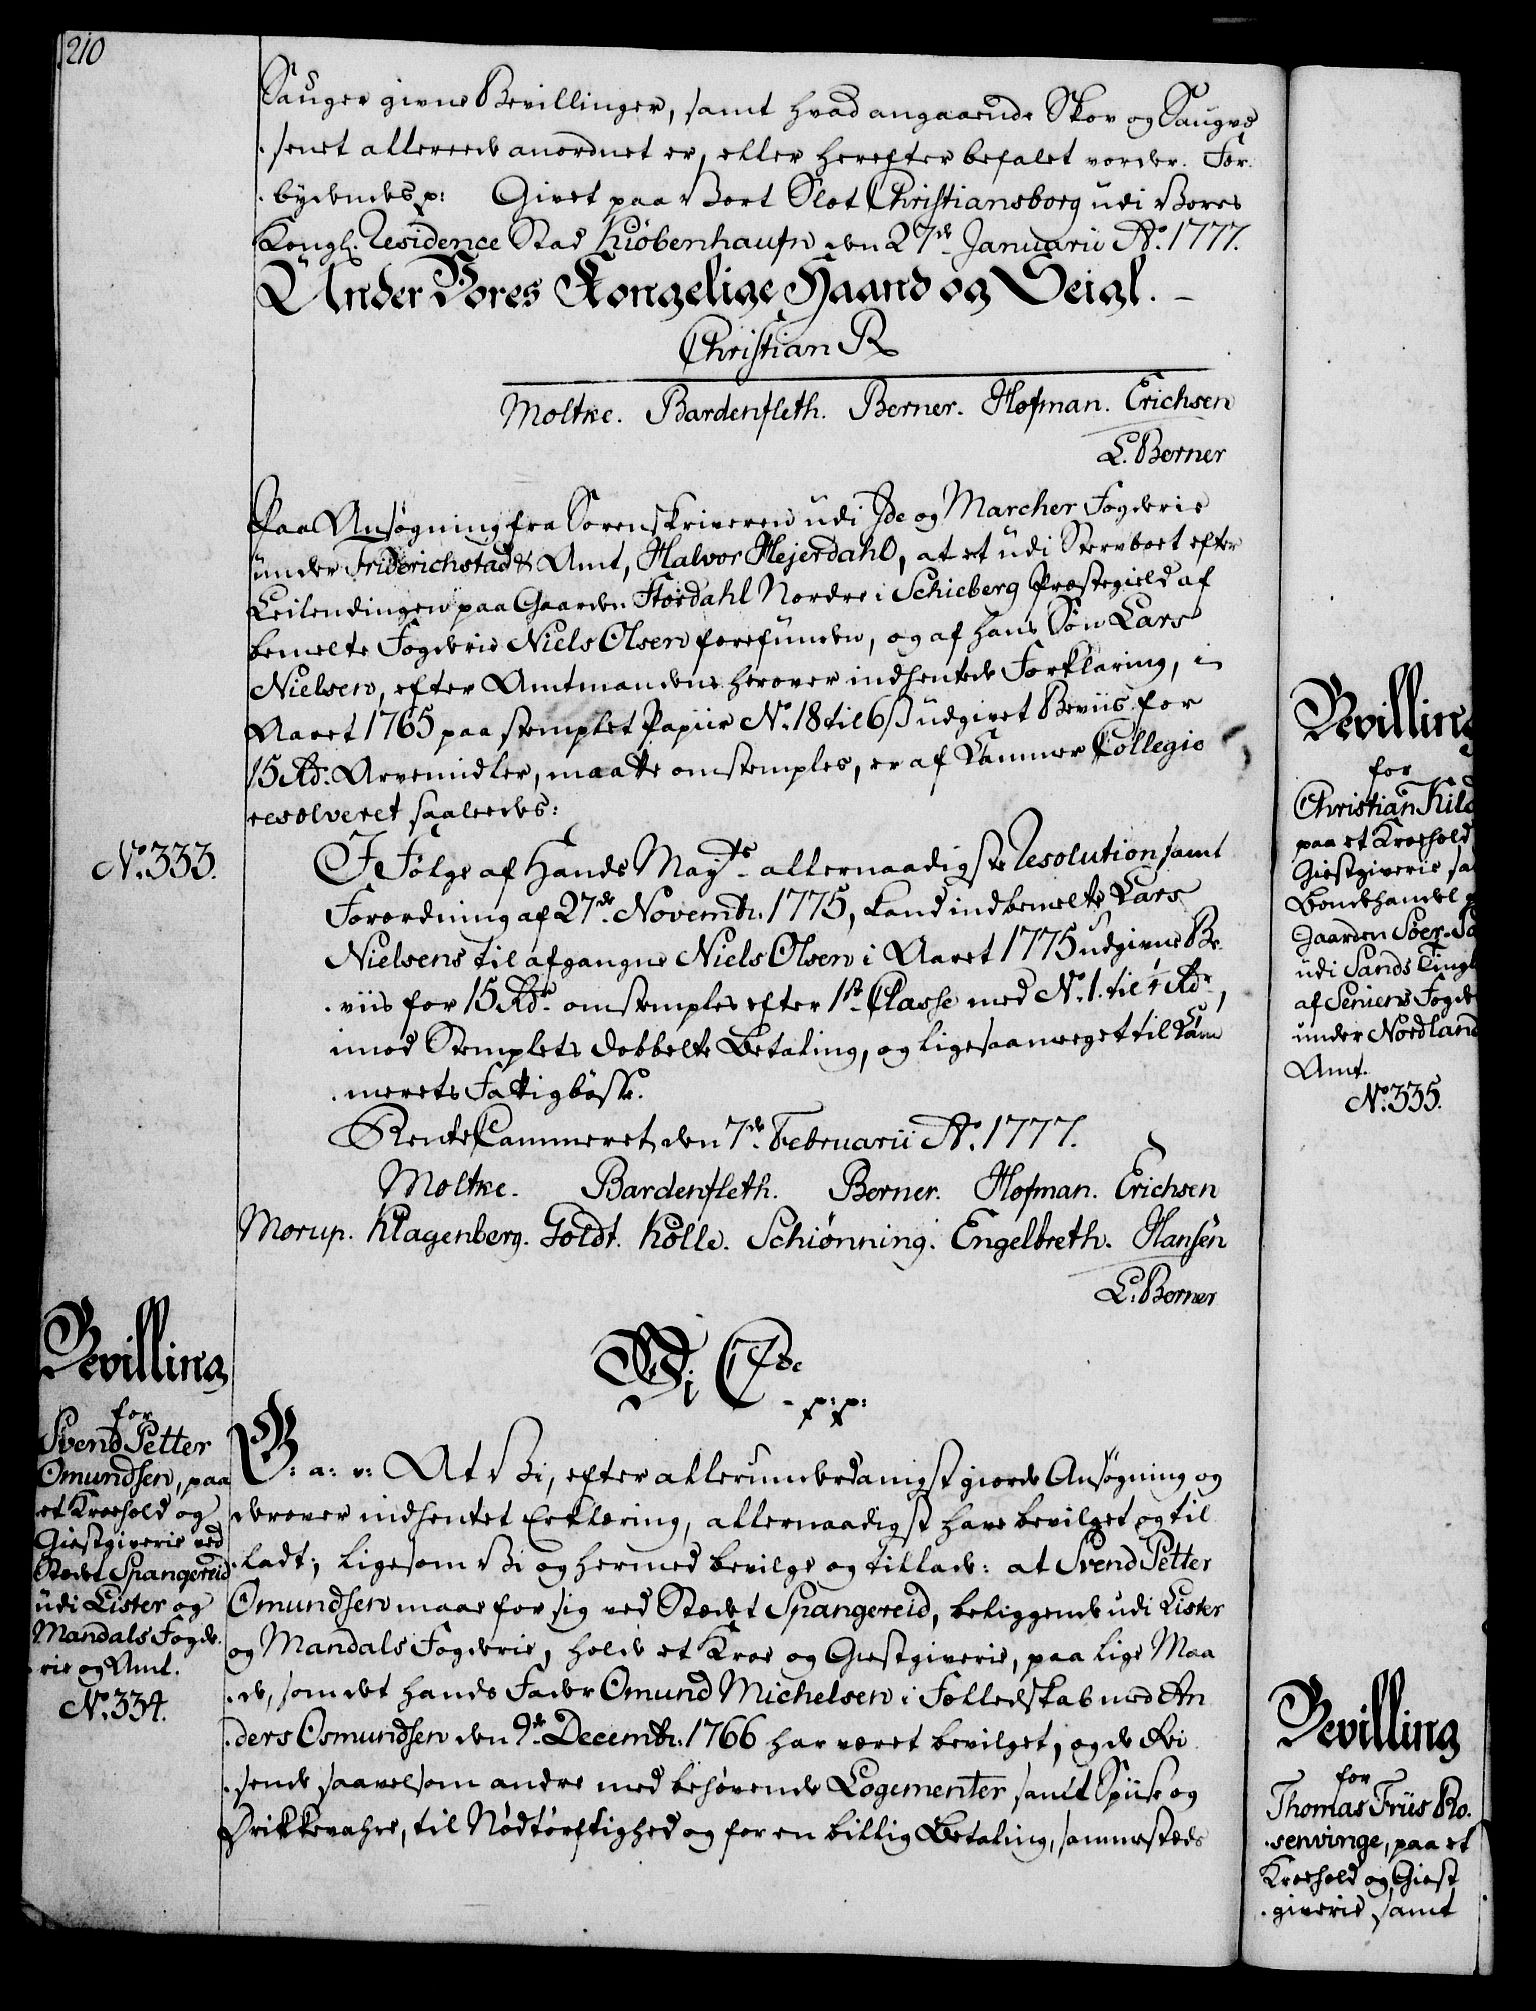 210
Sauger givne Bevillinger, samt hvad angaaende Skov og Saugvæ
senet allereede anordnet er, eller herefter befalet vorder. For-
bydendes p: Givet paa Vort Slot Christiansborg udi Vores
Kongl. Residence Stad Kiöbenhaufn den 27de Januarii Ao. 1777.
Under Vores Kongelige Haand og Seigl. -
Christian R
Moltke. Bardenfleth. Berner. Hofman. Erichsen
L. Berner
Paa Ansøgning fra Sorenskriveren udi Ide og Marcher Fogderie
under Friderichstads Amt, Halvor Hejerdahl, at et udi Stervboet efter
Leilendingen paa Gaarden Nordre i Schieberg Præstegield af
bemelte Fogderie Niels Olsen forefunden, og af hans Søn Lars
Nielsen, efter Amtmandens herover indhentede Forklaring, i
Aaret 1765 paa stemplet Papiir No. 18 til 6 ß udgivet Beviis for
15 Rd. Arvemidler, maatte omstemples, er af Kammer Collegio
resolveret saaledes:
No. 333.
I Følge af Hands Mayts allernaadigste Resolution samt
Forordning af 27de Novembr. 1775, kand indbemelte Lars
Nielsens til afgangne Niels Olsen i Aaret 1775 udgivne Be-
viis for 15 Rdr omstemples efter 1ste Classe med No. 1. til Rdr,
imod Stemplets dobbelte Betaling, og ligesaameget til Kam
merets Fattigbøsse.
RenteCammeret den 7de Februarii Ao. 1777.
Moltke. Bardenfleth. Berner. Hofman. Erichsen
Morup. Klagenberg. Foldt. Kölle. Schiønning. Engelbreth. Hansen
L. Berner
Bevilling
for
Svend Petter
Omundsen, paa
et Kroehold og
Giestgiverie ved
Stædet Spangereid
udi Lister og
Mandals Fogde-
rie og Amt.
No. 334.
Vi C 7de
p: p:
G: a: v: At Vi, efter allerunderdanigst giorde Ansøgning og
derover indhentet Erklæring, allernaadigst have bevilget og til-
ladt, ligesom Vi og hermed bevilge og tillade: at Svend Petter
Omundsen maae for sig ved Stædet Spangereid, beliggende udi Lister
og Mandals Fogderie, holde et Kroe og Giestgiverie, paa lige Maa
de, som det hands Fader Omund Michelsen i Følledskab med An
ders Osmundsen den 9de Decembr. 1766 har været bevilget, og de Rei
sende saavelsom andre med behøvende Logementer samt Spiise og
Drikkevahre, til Nødtørftighed og for en billig Betaling, sammesteds
Bevilling
for
Christian Kild
paa et Kroehold
Giestgiverie sa
Bondehandel p
Gaarden Söer-
udi Sands Tingl
af Seniens Fogde
under Nordland
Amt.
No. 335.
Bevilling
for
Thomas Friis Ro-
senvinge, paa et
Kroehold og Giest
giverie samt